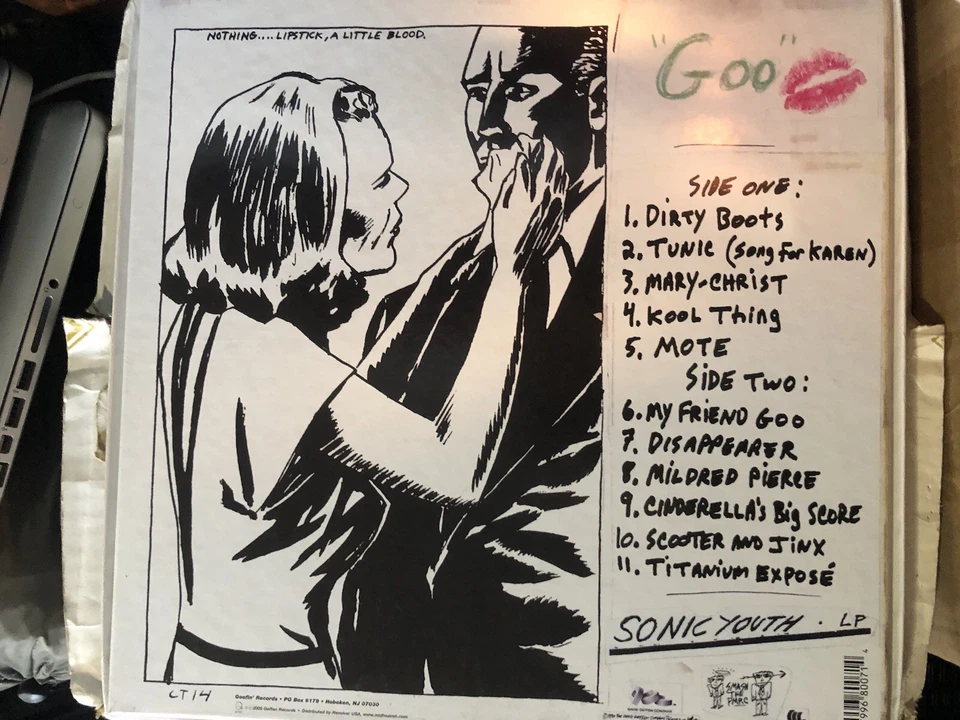 NOTHING.... LIPSTICK, A LITTLE BLOOD.
"Goo"
SIDE ONE:
1. DIRTY BOOTS
2. TUNIC (Song For KAREN)
3. MARY-CHRIST
4. KOOL THing
5. MOTE
SIDE TWO:
6. MY FRIEND GOO
7. DISAPPEARER
8. MILDRED PIERCE
9. CINDERELLA'S Big SCORE
10. SCOOTER AND JINX
11. TITANIUM EXPOSÉ
SONIC YOUTH · LP
SMASH THE PMRC
CT14
Goofin' Records • PO Box 6179 • Hoboken, NJ 07030